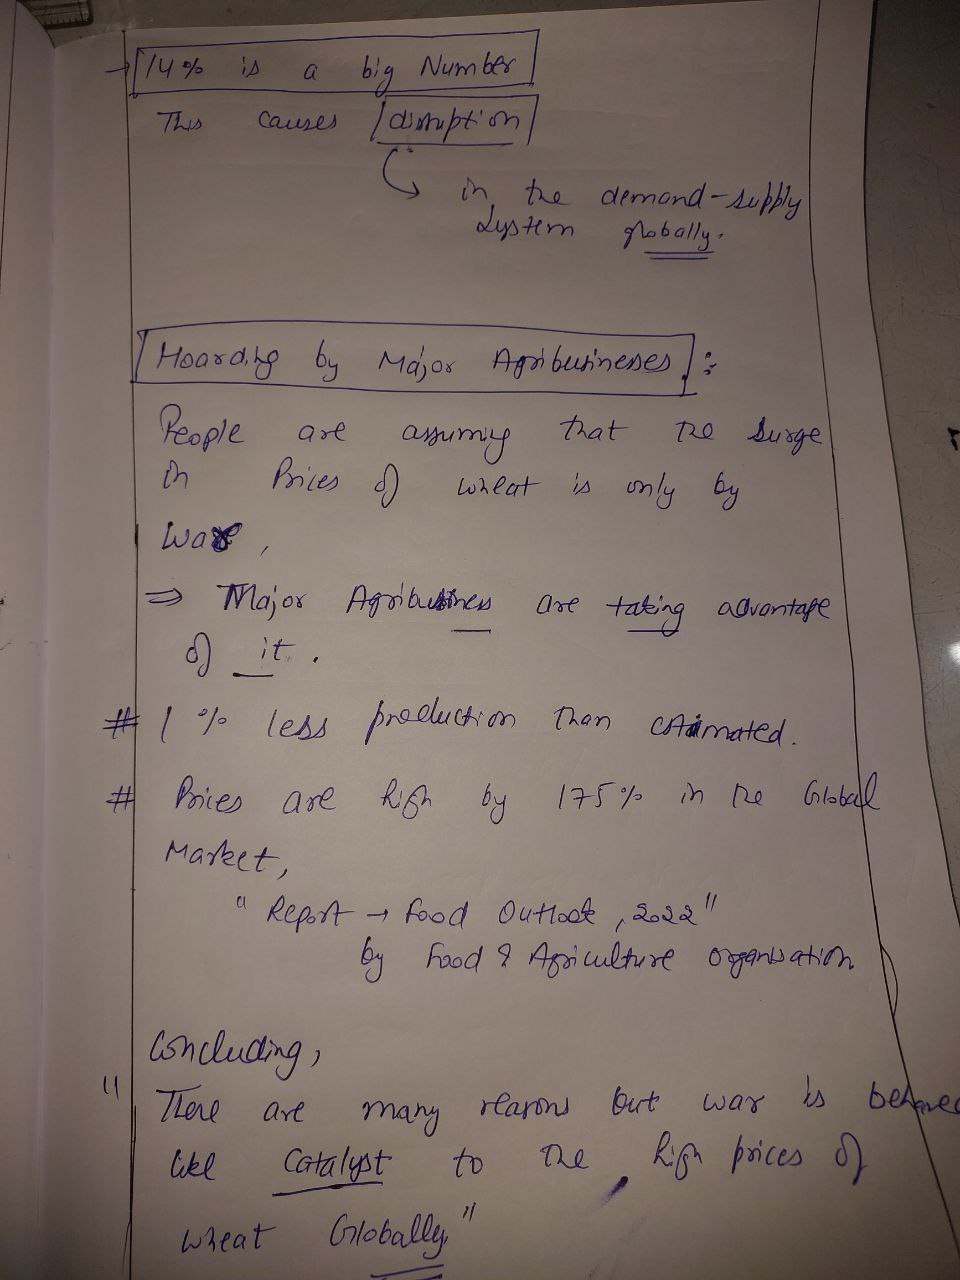 → 14% is a big Number
This causes disruption
in the demand-supply
system globally.
Hoarding by Major Agribusinesses :
People are assuming that the surge
in Prices of wheat is only by
war,
⇒ Major Agribusiness are taking advantage
of it.
# 1% less production than estimated.
# Prices are high by 175% in the Global
Market,
"Report → Food Outlook, 2022"
by Food & Agriculture organisation
Concluding,
" There are many reasons but war is behaved
like Catalyst to the high prices of
wheat Globally"